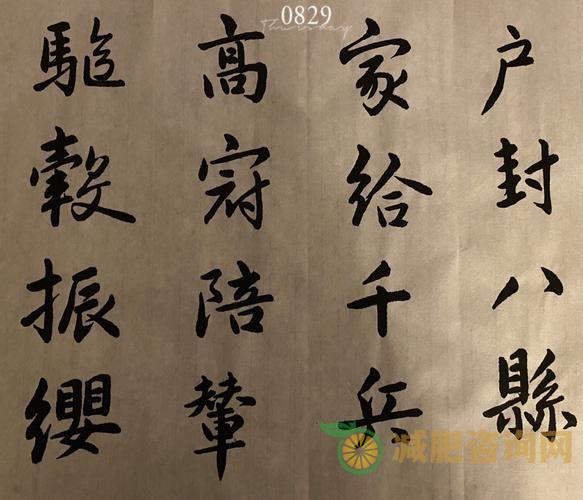 0829
Thursday
户封八縣
家給千兵
高冠陪輦
驅轂振纓
减肥咨询网